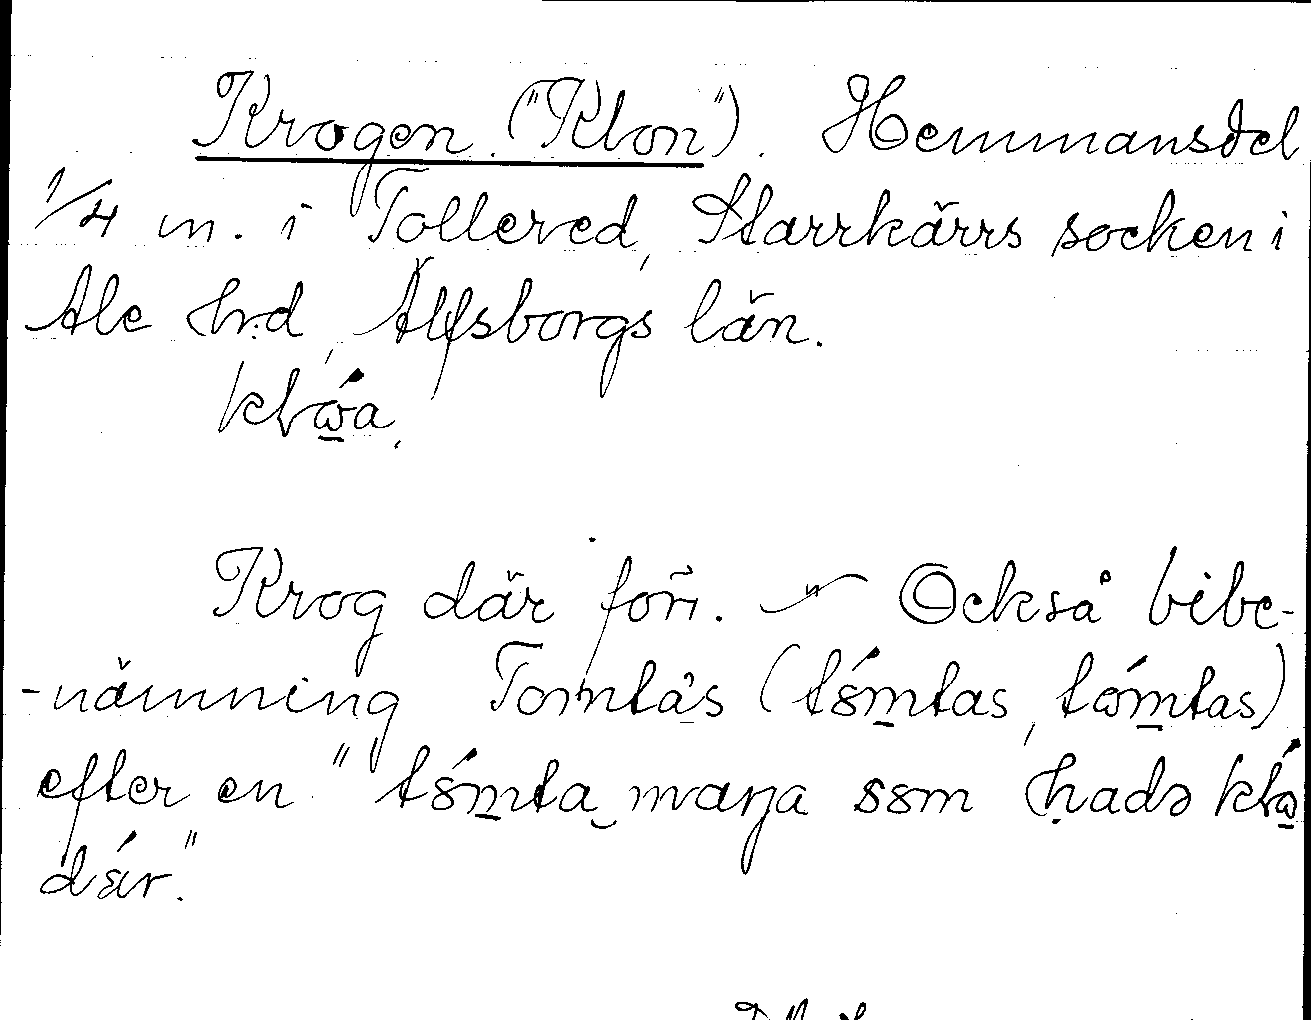 Krogen ("Kron"). Hemmansdel
1/4 m. i Tollered, Starrkärrs socken i
Ale hrd, Älfsborgs län.
Krog där förr. — Också bibe-
-nämning Tomtas (tómtas, támtas)
efter en "tómta maŋa som hadə
där."